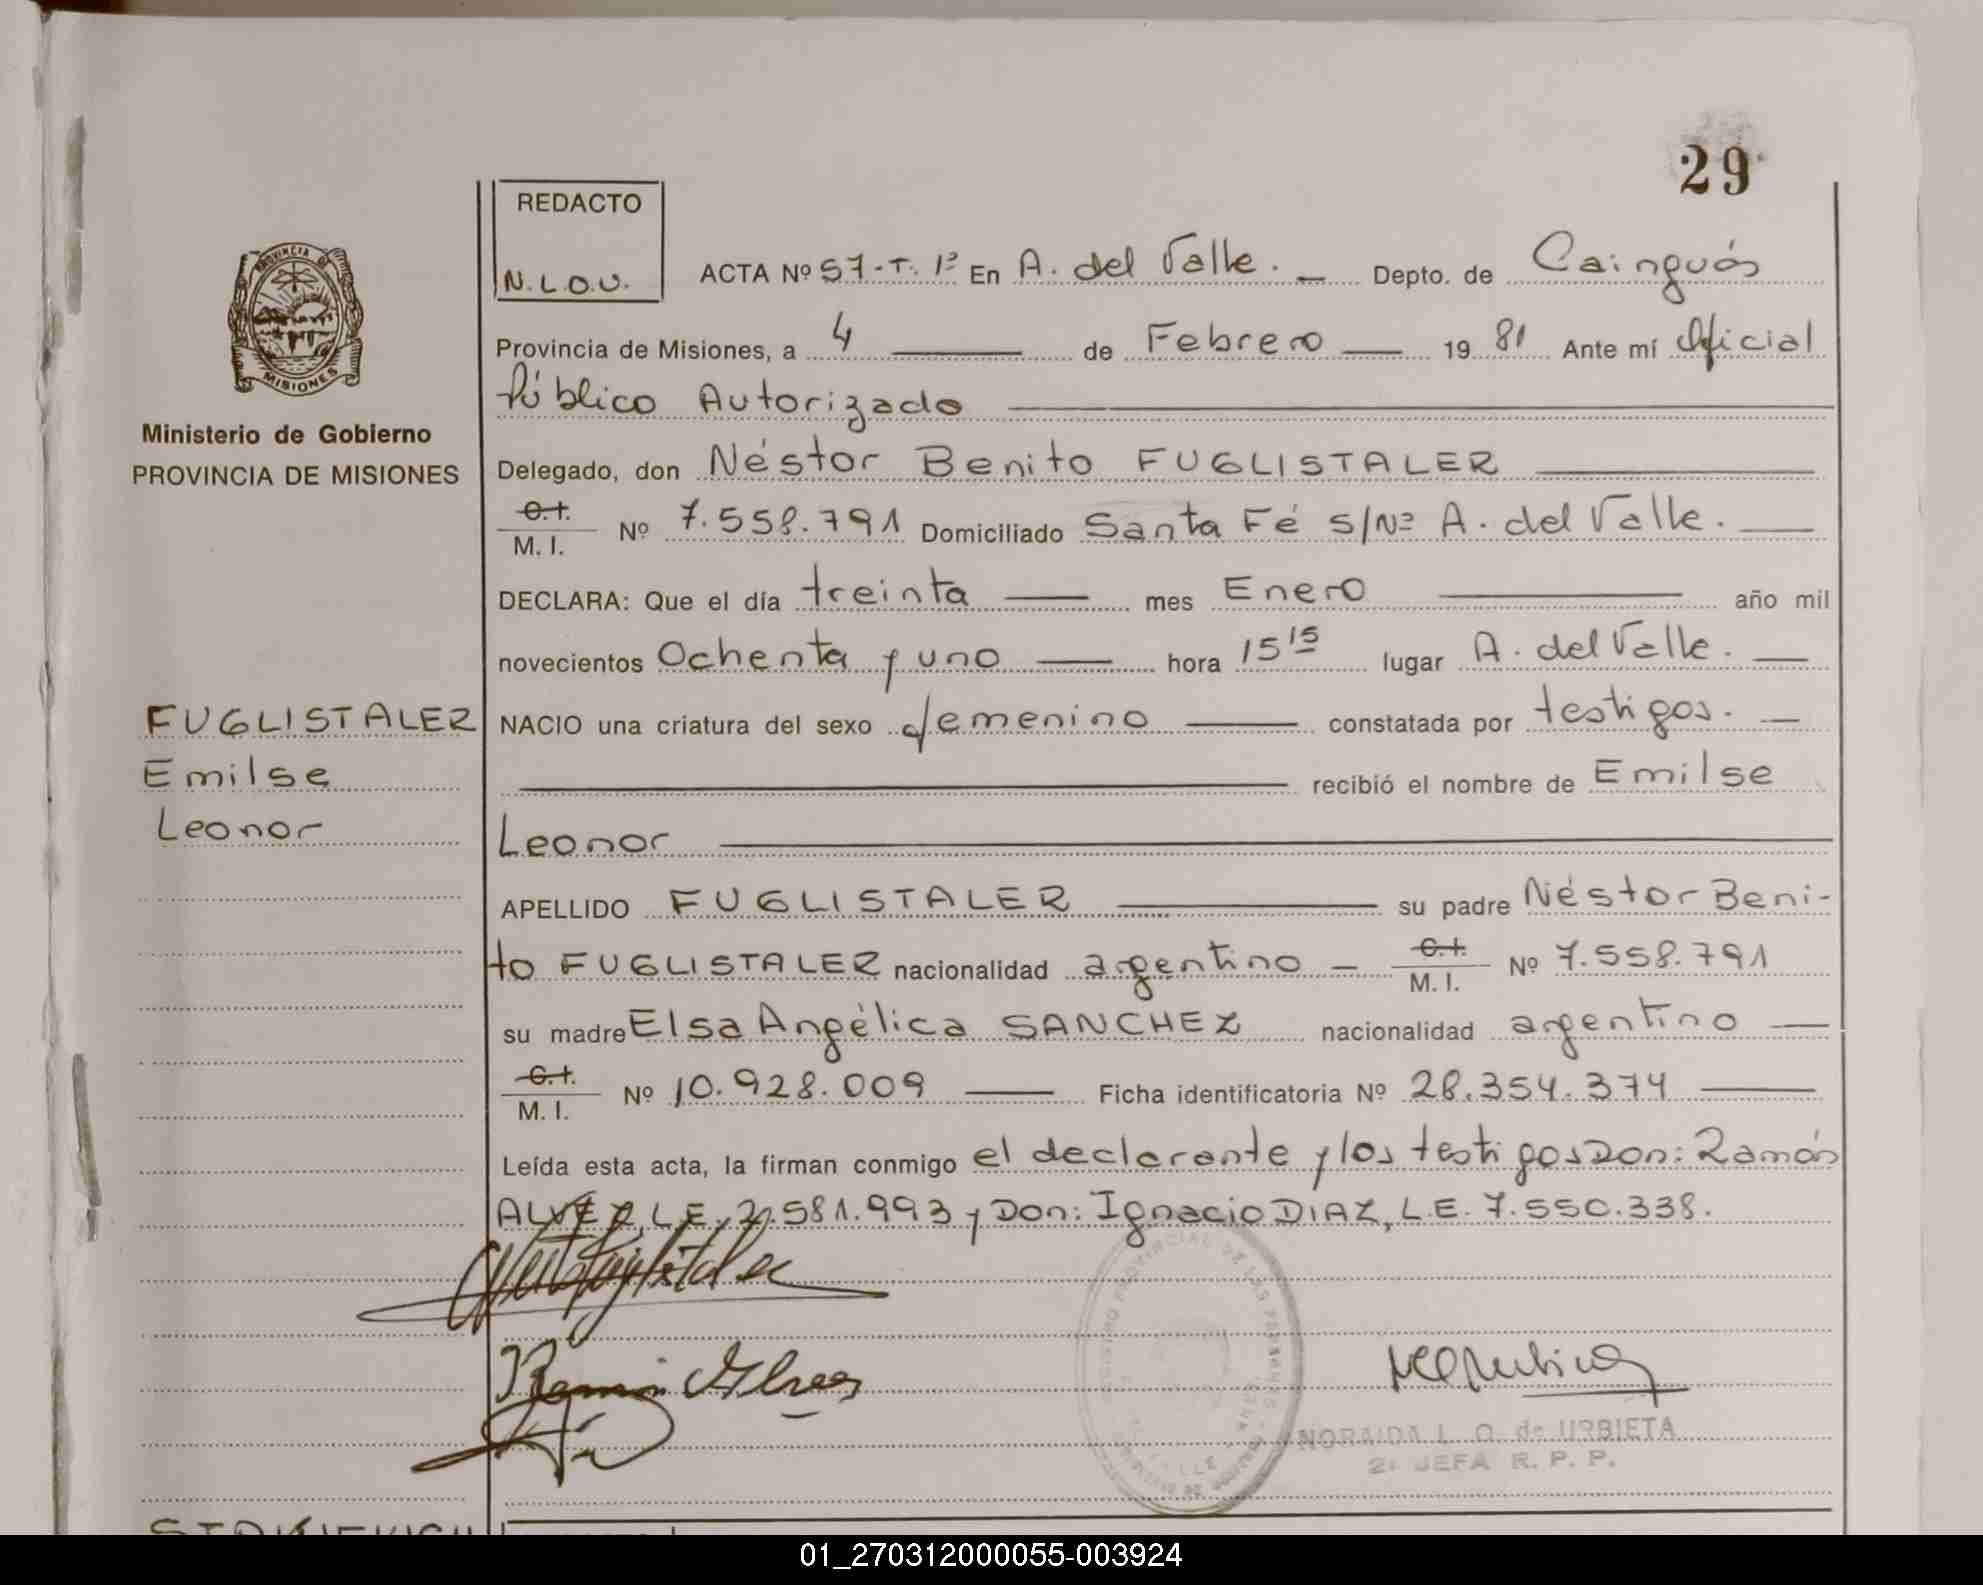 29
REDACTO
N.L.O.U.
ACTA Nº 57-T. 1º En A. del Valle. Depto. de Cainguás
Provincia de Misiones, a 4 de Febrero 19 81 Ante mí Oficial
Público Autorizado
PROVINCIA DE
MISIONES
Ministerio de Gobierno
PROVINCIA DE MISIONES
Delegado, don Néstor Benito FUGLISTALER
C.I.
M. I. Nº 7.558.791 Domiciliado Santa Fé S/Nº A. del Valle.
DECLARA: Que el día treinta mes Enero año mil
novecientos Ochenta y uno hora 15 15 lugar A. del Valle.
FUGLISTALER
Emilse
Leonor
NACIO una criatura del sexo femenino constatada por testigos.
recibió el nombre de Emilse
Leonor
APELLIDO FUGLISTALER su padre Néstor Beni-
to FUGLISTALER nacionalidad argentino C.I.
M. I. Nº 7.558.791
su madre Elsa Angélica SANCHEZ nacionalidad argentino
C.I.
M. I. Nº 10.928.009 Ficha identificatoria Nº 28.354.374
Leída esta acta, la firman conmigo el declarante y los testigos Don: Ramón
ALVEZ, L.E. 7.581.993 y Don: Ignacio DIAZ, L.E. 7.550.338.
Ramon Alves
REGISTRO PROVINCIAL DE LAS PERSONAS
NORAIDA L. O. de URBIETA
2º JEFA R. P. P.
01_270312000055-003924